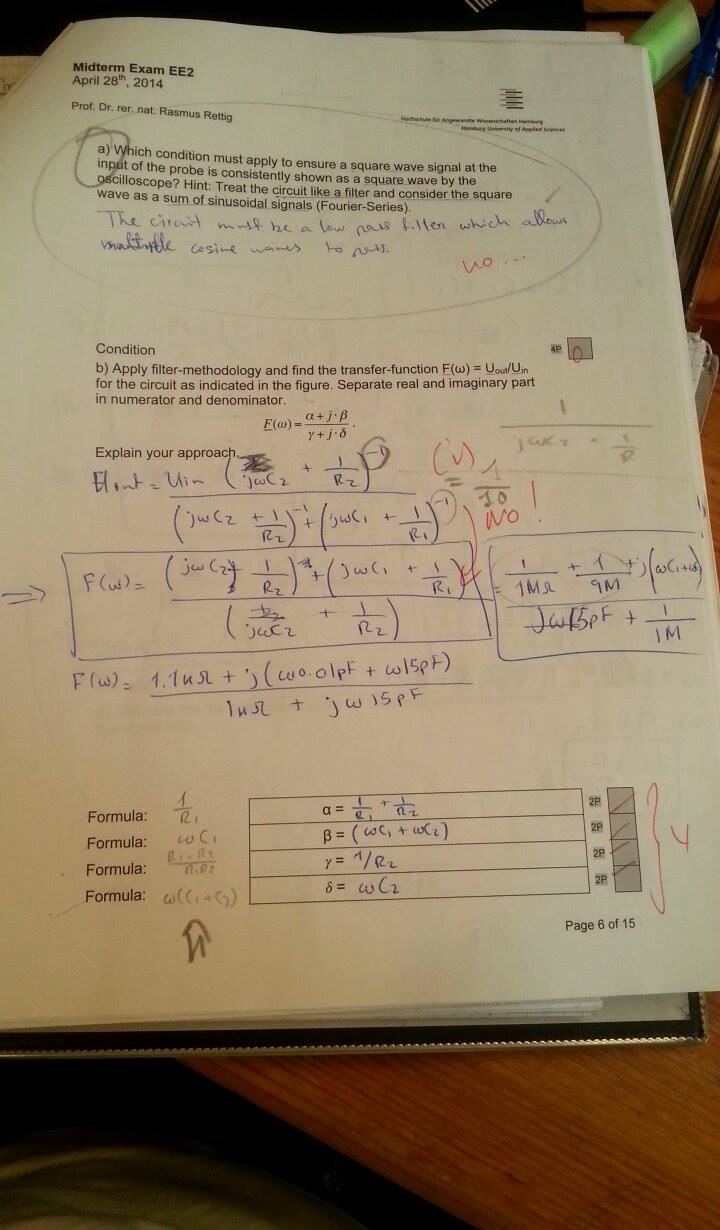 Midterm Exam EE2
April 28th, 2014
Prof. Dr. rer. nat. Rasmus Rettig
Hochschule für Angewandte Wissenschaften Hamburg
Hamburg University of Applied Sciences
a) Which condition must apply to ensure a square wave signal at the
input of the probe is consistently shown as a square wave by the
oscilloscope? Hint: Treat the circuit like a filter and consider the square
wave as a sum of sinusoidal signals (Fourier-Series).
The circuit must be a low pass filter which allows
multiple cosine waves to pass.
no ...
Condition
4P 0
b) Apply filter-methodology and find the transfer-function F(ω) = Uout/Uin
for the circuit as indicated in the figure. Separate real and imaginary part
in numerator and denominator.
F(ω) = (α + j·β) / (γ + j·δ) .
1 / (jωC2 + 1/R)
Explain your approach.
Uout = Uin (jωC2 + 1/R2)^-1 / ((jωC2 + 1/R2)^-1 + (jωC1 + 1/R1)^-1)
(✓) = 1/10
NO!
⇒ F(ω) = ((jωC2) + 1/R2) + (jωC1 + 1/R1) / (jωC2 + 1/R2)
= (1/1MΩ + 1/9M + j(ωC1+ωC2)) / (jω15pF + 1/1M)
F(ω) = (1.1uΩ + j(ω0.01pF + ω15pF)) / (1uΩ + jω15pF)
Formula: 1/R1 α = 1/R1 + 1/R2 2P
Formula: ωC1 β = (ωC1 + ωC2) 2P
Formula: (R1+R2)/R1R2 γ = 1/R2 2P
Formula: ω(C1+C2) δ = ωC2 2P
4
Page 6 of 15